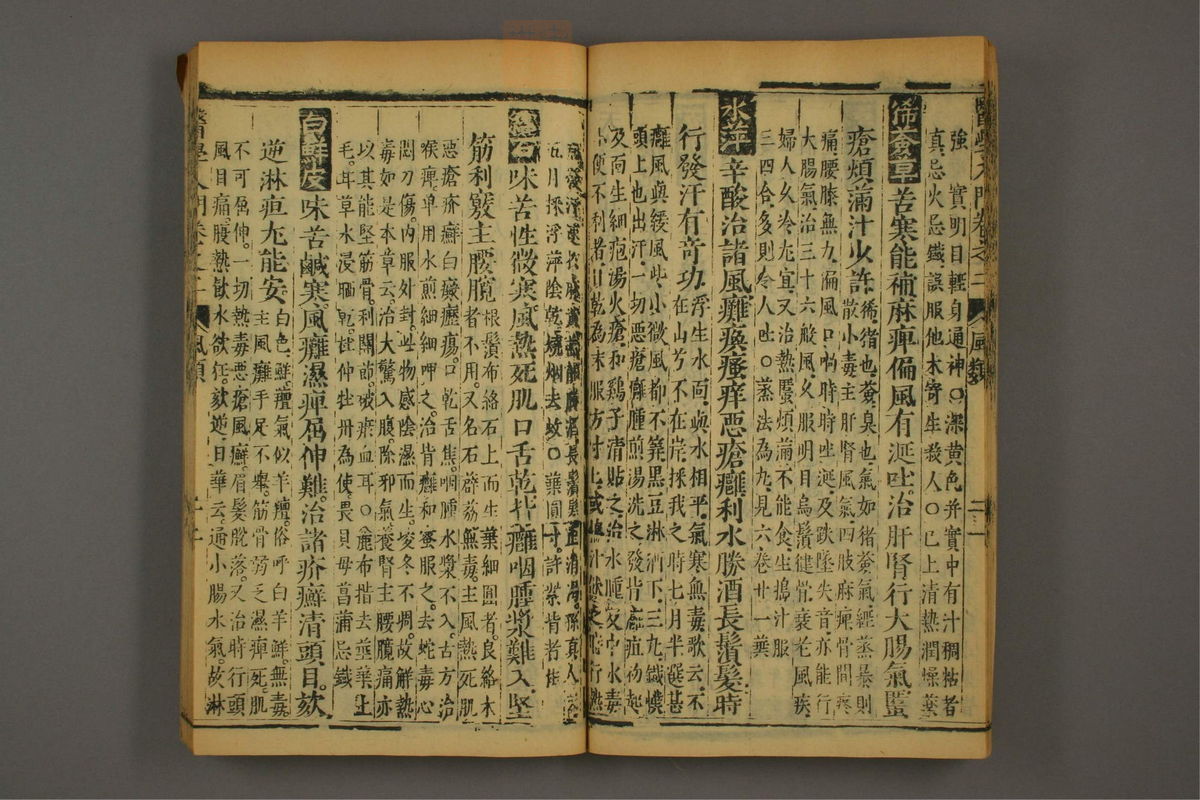 醫學入門卷之二 風類 二十一
強實明目輕身通神〇深黃色并實中有汁稠粘者
真忌火忌鐵誤服他木寄生殺人〇已上清熱潤燥藥
豨薟草苦寒能補麻痺偏風有涎吐治肝腎行大腸氣䘌
瘡煩滿汁少許
豨猪也薟臭也氣如猪薟氣經蒸暴則
散小毒主肝腎風氣四肢麻痺骨間疼
痛腰膝無力偏風口喎時時吐涎及跌墜失音亦能行
大腸氣治三十六般風久服明目烏鬚健骨衰老風疾
婦人久冷尤宜又治熱䘌煩滿不能食生搗汁服
三四合多則令人吐〇蒸法為丸見六卷廿一葉
水萍辛酸治諸風癱瘓瘙痒惡瘡癰利水勝酒長鬚髮時
行發汗有奇功
浮生水面與水相平氣寒無毒歌云不
在山兮不在岸採我之時七月半選甚
癱風與緩風些小微風都不筭黑豆淋酒下三丸鐵幞
頭上也出汗一切惡瘡癰腫煎湯洗之發背癰疽初起
及面生細疱湯火瘡和鷄子清貼之治水腫及中水毒
小便不利者日乾為末服方寸匕
五月採浮萍陰乾燒烟去蚊〇葉圓寸許紫背者佳
絡石味苦性微寒風熱死肌口舌乾背癰咽腫漿難入堅
筋利竅主腰髖
根鬚布絡石上而生葉細圓者良絡木
者不用又名石薜荔無毒主風熱死肌
惡瘡疥癬白癜癧瘍口乾舌焦咽腫水漿不入古方治
喉痺單用水煎細細呷之治背癰和蜜服之去蛇毒心
悶刀傷內服外封此物感陰濕而生凌冬不凋故解熱
毒如是本草云治大驚入腹除邪氣養腎主腰髖痛亦
以其能堅筋骨利關節破瘀血耳〇麄布揩去莖葉上
毛甘草水浸晒乾杜仲牡丹為使畏貝母菖蒲忌鐵
白鮮皮味苦鹹寒風癱濕痺屈伸難治諸疥癬清頭目欬
逆淋疸尤能安
白色鮮羶氣似羊羶俗呼白羊鮮無毒
主風癱手足不舉筋骨弱之濕痺死肌
不可屈伸一切熱毒惡瘡風癬眉髮脫落又治時行頭
風目痛腹熱飲水欲狂欬逆日華云通小腸水氣故淋
醫學入門卷之二 風類